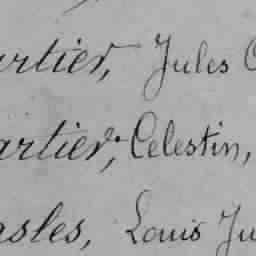 artier, Jules C
artier, Celestin,
asles, Louis Ju